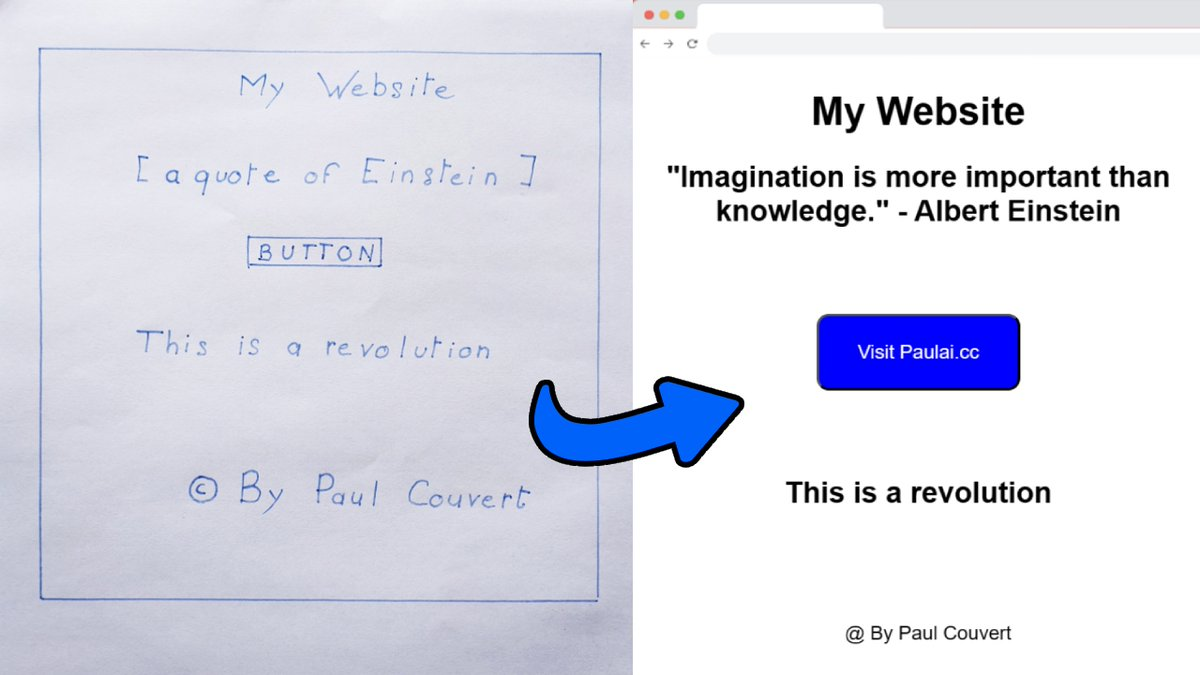 My Website
[a quote of Einstein]
BUTTON
This is a revolution
© By Paul Couvert
My Website
"Imagination is more important than
knowledge." - Albert Einstein
Visit Paulai.cc
This is a revolution
@ By Paul Couvert